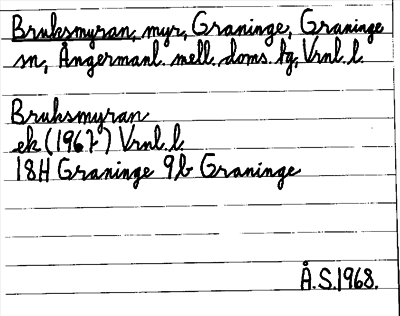 Bruksmyran, myr, Graninge, Graninge
sn, Ångermanl. mell. doms. tg, Vrnl. l.
Bruksmyran
ek (1967) Vrnl. l.
18H Graninge 9b Graninge
Å.S.1968.